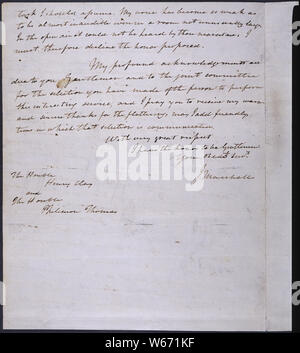 task I should assume. My voice has become so weak as
to be almost inaudible even in a room not unusually large.
In the open air it could not be heard by those nearest me. I
must therefore decline the honor proposed.
My profound acknowledgements are
due to you Gentlemen and to the joint committee
for the selection you have made of the person to perform
this interesting service, and I pray you to receive my warm
and sincere thanks for the flattering, may I add friendly
terms in which that selection is communicated
With very great respect
I have the honor to be Gentlemen
your Obedt Servt.
J Marshall
The Honble
Henry Clay
and
The Honble
Philemon Thomas
alamy
alamy
Image ID: W671KF
www.alamy.com